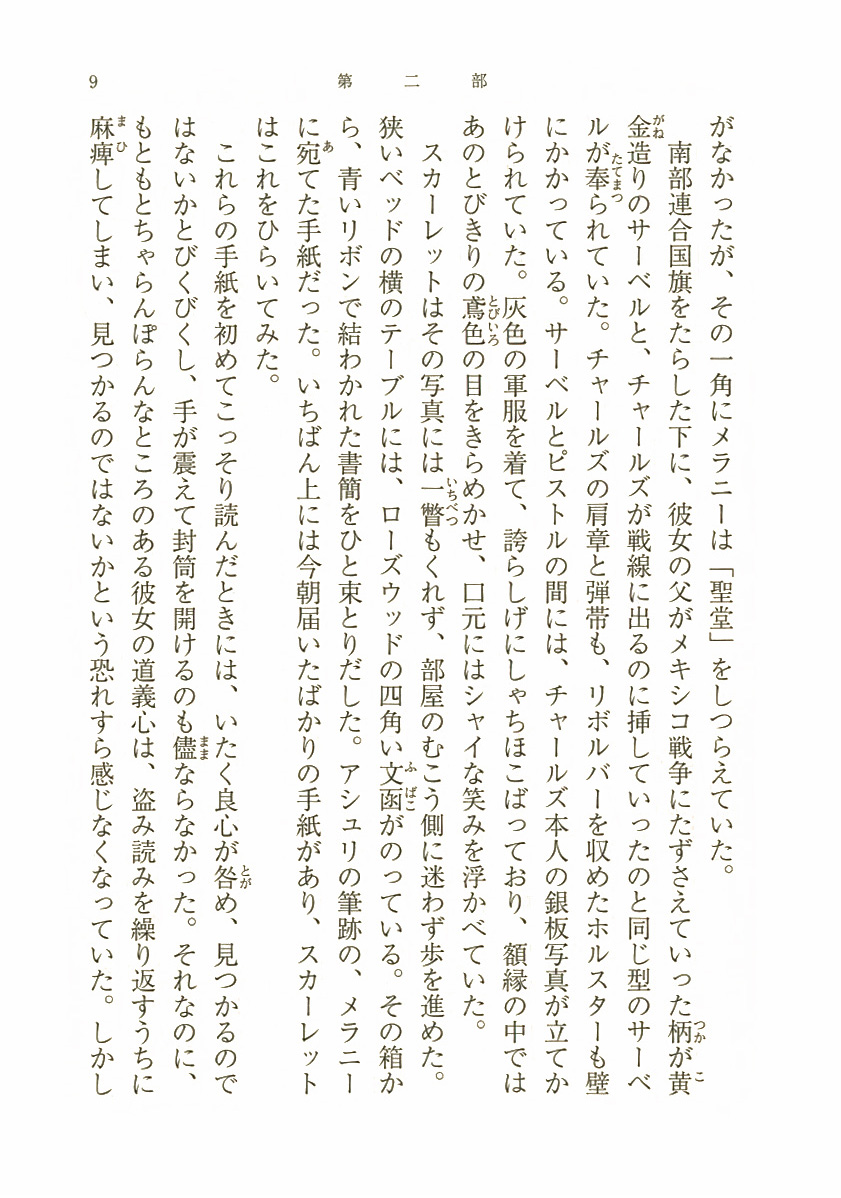 9
第二部
がなかったが、その一角にメラニーは「聖堂」をしつらえていた。
南部連合国旗をたらした下に、彼女の父がメキシコ戦争にたずさえていった柄が黄
つか
こ
金造りのサーベルと、チャールズが戦線に出るのに挿していったのと同じ型のサーベ
がね
ルが奉られていた。チャールズの肩章と弾帯も、リボルバーを収めたホルスターも壁
たてまつ
にかかっている。サーベルとピストルの間には、チャールズ本人の銀板写真が立てか
けられていた。灰色の軍服を着て、誇らしげにしゃちほこばっており、額縁の中では
あのとびきりの鳶色の目をきらめかせ、口元にはシャイな笑みを浮かべていた。
とびいろ
スカーレットはその写真には一瞥もくれず、部屋のむこう側に迷わず歩を進めた。
いちべつ
狭いベッドの横のテーブルには、ローズウッドの四角い文函がのっている。その箱か
ふばこ
ら、青いリボンで結わかれた書簡をひと束とりだした。アシュリの筆跡の、メラニー
に宛てた手紙だった。いちばん上には今朝届いたばかりの手紙があり、スカーレット
あ
はこれをひらいてみた。
これらの手紙を初めてこっそり読んだときには、いたく良心が咎め、見つかるので
とが
はないかとびくびくし、手が震えて封筒を開けるのも儘ならなかった。それなのに、
まま
もともとちゃらんぽらんなところのある彼女の道義心は、盗み読みを繰り返すうちに
麻痺してしまい、見つかるのではないかという恐れすら感じなくなっていた。しかし
まひ